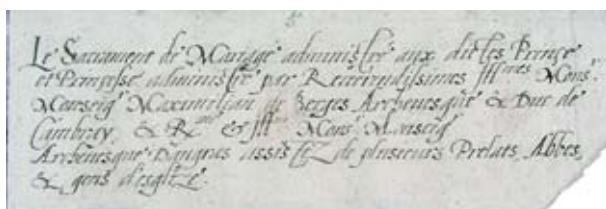 Le Sacrament de Mariage administré aux dictes Prince
et Princesse administré par Reverendissimes Illmes Monsr
Monseigr Maximilian de Berges Archevesque & Duc de
Cambrey, & Rme & Illme Monsr Monseigr
Archevesque Daugnas assistez de plusieurs Prelats, Abbes,
& gens desglize.